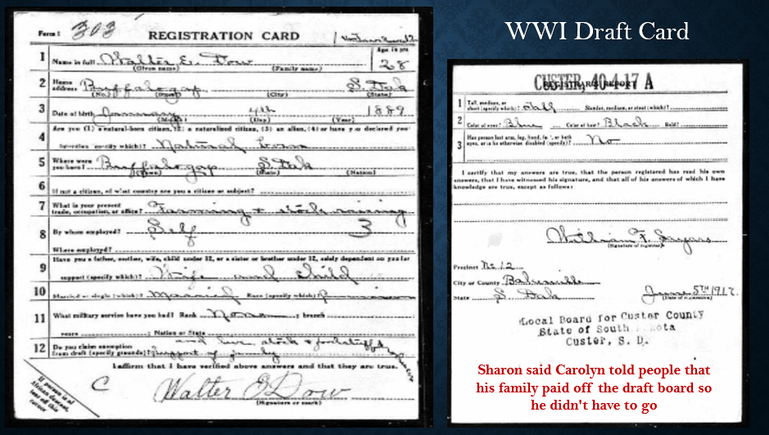 WWI Draft Card
Form 1 303 REGISTRATION CARD
Age in yrs
1 Name in full Walter E. Dow 28
(Given name) (Family name)
2 Home address Buffalo Gap S. Dak
(No.) (Street) (City) (State)
3 Date of birth January 4th 1889
(Month) (Day) (Year)
4 Are you (1) a natural-born citizen, (2) a naturalized citizen, (3) an alien, (4) or have you declared your
intention (specify which)? Natural born
5 Where were you born? Buffalo Gap S. Dak
(Town) (State) (Nation)
6 If not a citizen, of what country are you a citizen or subject?
7 What is your present trade, occupation, or office? Farming + stock raising
8 By whom employed? Self 3
Where employed?
9 Have you a father, mother, wife, child under 12, or a sister or brother under 12, solely dependent on you for
support (specify which)? Wife and child
10 Married or single (which)? Married Race (specify which)?
11 What military service have you had? Rank None ; branch
years ; Nation or State
12 Do you claim exemption from draft (specify grounds)? Support of family
I affirm that I have verified above answers and that they are true.
C Walter E Dow
(Signature or mark)
CUSTER 40-4-17 A
1 Tall, medium, or short (specify which)? Tall Slender, medium, or stout (which)?
2 Color of eyes? Blue Color of hair? Black Bald?
3 Has person lost arm, leg, hand, foot, or both eyes, or is he otherwise disabled (specify)? No
I certify that my answers are true, that the person registered has read his own
answers, that I have witnessed his signature, and that all of his answers of which I have
knowledge are true, except as follows:
William F. Sayars
(Signature of registrar)
Precinct No. 12
City or County
State S. Dak June 5th 1917
(Date of registration)
Local Board for Custer County
State of South Dakota
Custer, S. D.
Sharon said Carolyn told people that
his family paid off the draft board so
he didn't have to go